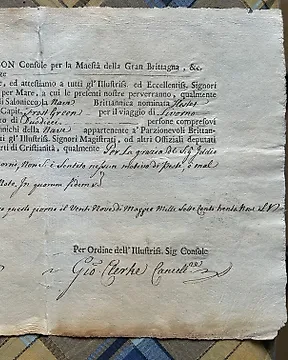 ON Console per la Maestà della Gran Brittagna, &c.
ed attestiamo a tutti gl' Illustriss. ed Eccellentiss. Signori
per Mare, a cui le presenti nostre perverranno, qualmente
di Salonicco la Nave Brittannica nominata
Capit. Green per il viaggio di Livorno
ro di Quodici persone compresovi
nichi della Nave appartenente a' Parzionevoli Brittan-
gl' Illustriss. Signori Magistrati, od altri Officiali deputati
rti di Cristianità, qualmente Per La grazia di S. Iddio
Non S'è Sentito nessun motivo di Peste, o mal
In quorum fidem
questo giorno il Venti Nove di Maggio Mille Sette Cento Trenta Nove S.V.
Per Ordine dell' Illustriss. Sig Console
Gio Clerke Cancell.re